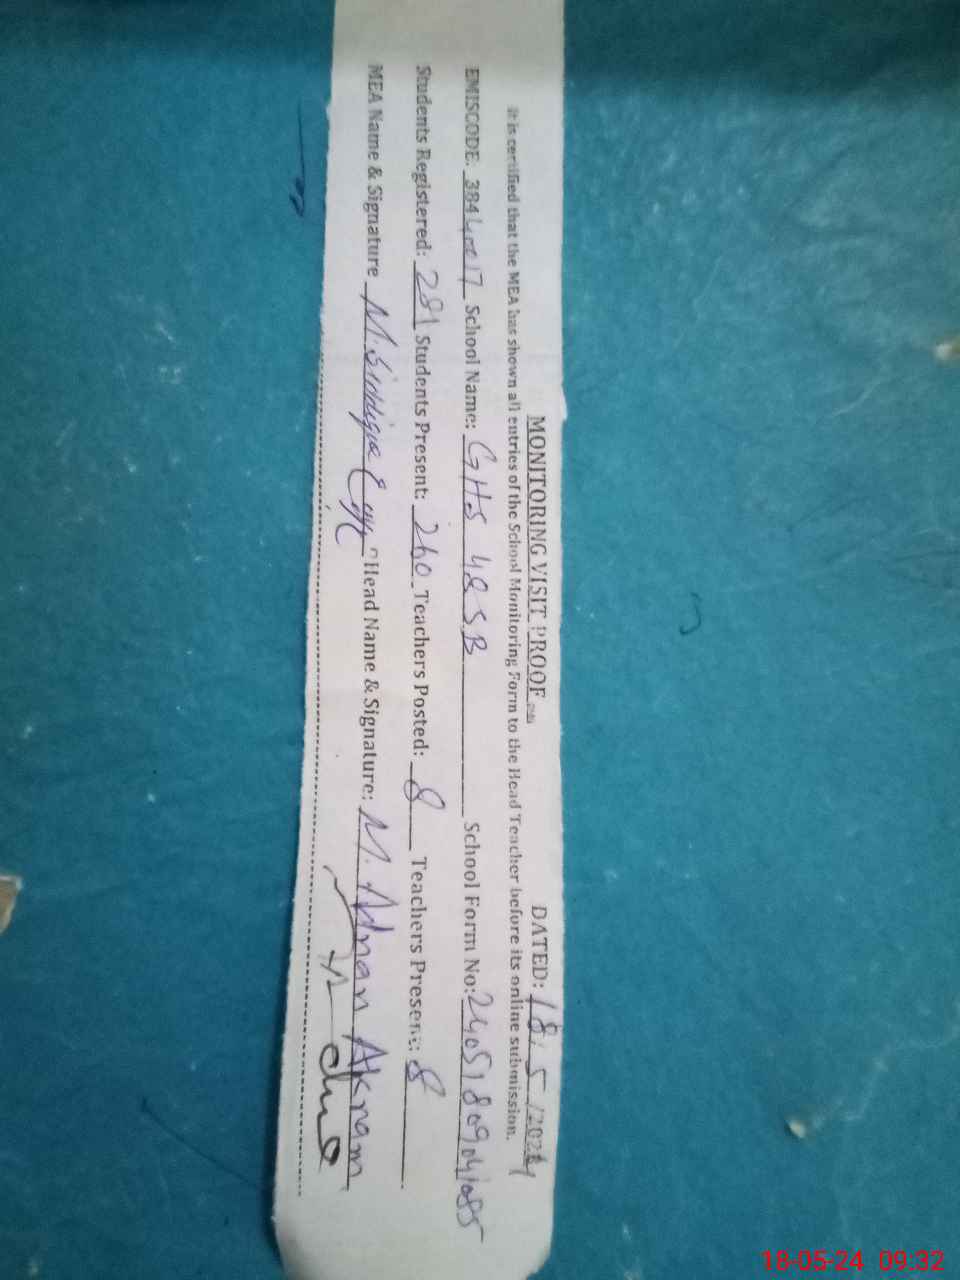 MONITORING VISIT PROOF DATED: 18/5/2024
It is certified that the MEA has shown all entries of the School Monitoring Form to the Head Teacher before its online submission.
EMISCODE. 38440017 School Name: GHS 48 SB School Form No: 24051809041085
Students Registered: 281 Students Present: 260 Teachers Posted: 8 Teachers Present: 8
MEA Name & Signature M. Siddique Head Name & Signature: M. Adnan Akram
18-05-24 09:32